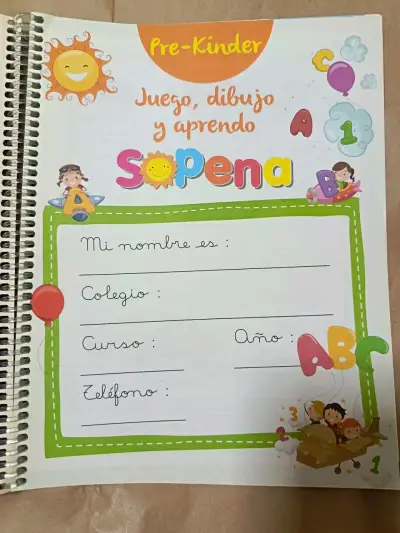 Pre-Kinder
Juego, dibujo
y aprendo
Sopena
C
A
1
A
B
Mi nombre es :
Colegio :
Curso :
Año :
Teléfono :
ABC
3
2
1